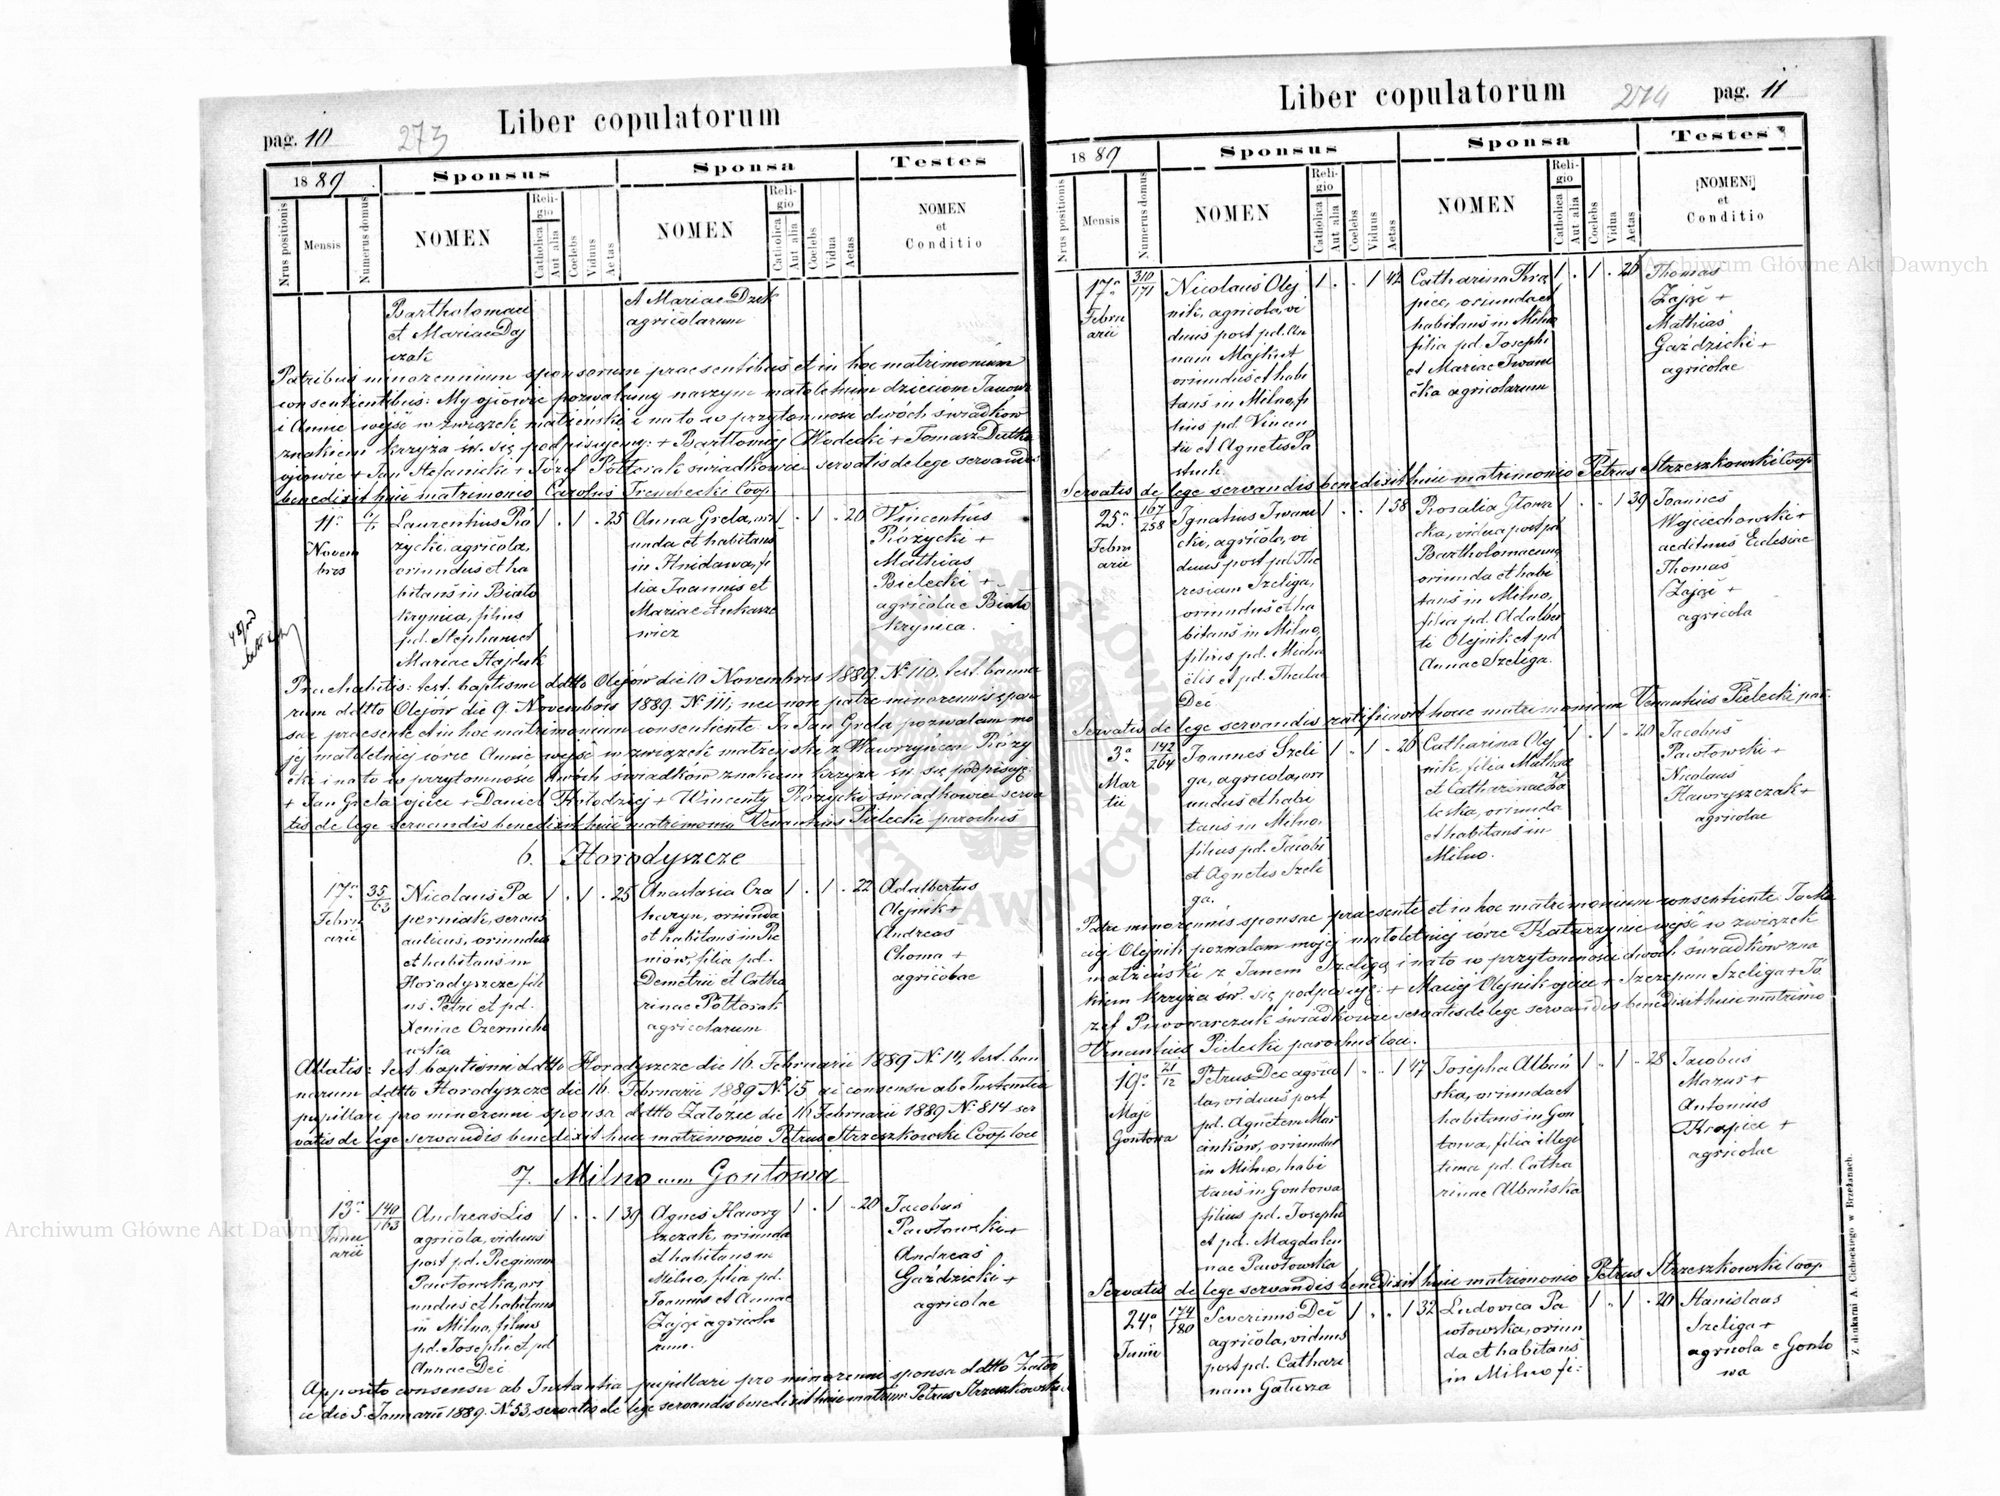 Liber copulatorum
pag. 10
273
18 89
Sponsus
Sponsa
Testes
Nrus positionis
Mensis
Numerus domus
NOMEN
Religio
Catholica
Aut alia
Coelebs
Viduus
Aetas
NOMEN
Religio
Catholica
Aut alia
Coelebs
Vidua
Aetas
NOMEN
et
Conditio
Bartholomaei
et Mariae Daj
czak
et Mariae Dzik
agricolarum
Patribus minorennium sponsorum praesentibus et in hoc matrimonium
consentientibus: My ojcowie pozwalamy naszym małoletnim dzieciom Janowi
i Annie wejść w związek małżeński i na to w przytomności dwóch świadków
znakiem krzyża św. się podpisujemy: + Bartłomiej Włodecki + Tomasz Dutka
ojcowie + Jan Stefanicki + Józef Półtorak świadkowie servatis de lege servandis
benedixit huic matrimonio Carolus Coop
11a
Novem
bres
Laurentius Ró
życki, agricola,
oriundus et ha
bitans in Biało
krynica, filius
pd. Stephani et
Mariae Hajduk
1 . 1 . 25
Anna Grela, ori
unda et habitans
in Hnidawa, fi
lia Joannis et
Mariae Łukasze
wicz
1 . 1 . 20
Vincentius
Różycki +
Mathias
Bielecki +
agricolae Biało
krynica.
Praehabitis: test. baptismi ddtto Olejów die 10 Novembris 1889. N. 110, test. banno
rum ddtto Olejów die 9 Novembris 1889 N. 111, nec non patre minorennis spon
sae praesente et in hoc matrimonium consentiente. Ja Jan Grela pozwalam mo
jej małoletniej córce Annie wejść w związek małżeński z Wawrzyńcem Róży
cki i na to w przytomności dwóch świadków znakiem krzyża św. się podpisuję
+ Jan Grela ojciec + Daniel Kołodziej + Wincenty Różycki świadkowie serva
tis de lege servandis benedixit huic matrimonio Venantius Pielecki parochus
6. Horodyszcze
17a
Febru
arii
35
63
Nicolaus Pa
perniak, servus
aulicus, oriundus
et habitans in
Horodyszcze fili
us Petri et pd.
Xeniae Czernicho
wska
1 . 1 . 25
Anastasia Cza
haryn, oriunda
et habitans in Re
niow, filia pd.
Demetrii et Catha
rinae Półtorak
agricolarum
1 . 1 . 22
Adalbertus
Olejnik +
Andreas
Choma +
agricolae
Allatis: test baptismi ddtto Horodyszcze die 16. Februarii 1889 N. 14, test. ban
norum ddtto Horodyszcze die 16. Februarii 1889 N. 15 ac consensu ab Instantia
pupillari pro minorenni sponsa ddtto Załoźce die 16 Februarii 1889 N. 814 ser
vatis de lege servandis benedixit huic matrimonio Petrus Strzeszkowski Coop loci
7. Milno cum Gontowa
13a
Janu
arii
140
163
Andreas Lis
agricola, viduus
post pd. Reginam
Pawłowska, ori
undus et habitans
in Milno, filius
pd. Josephi et pd
Annae Deć
1 . . 1 39
Agnes Hawry
szczak, oriunda
et habitans in
Milno, filia pd.
Joannis et Annae
Zając agricola
rum.
1 . 1 . 20
Jacobus
Pawłowski +
Andreas
Gaździcki +
agricolae
Apposito consensu ab Instantia pupillari pro minorenni sponsa ddtto Załoź
ce die 5. Januarii 1889. N. 53, servatis de lege servandis benedixit huic matrim Petrus Strzeszkowski
Liber copulatorum
274
pag. 11
18 89
Sponsus
Sponsa
Testes
Nrus positionis
Mensis
Numerus domus
NOMEN
Religio
Catholica
Aut alia
Coelebs
Viduus
Aetas
NOMEN
Religio
Catholica
Aut alia
Coelebs
Vidua
Aetas
NOMEN
et
Conditio
17a
Febru
arii
310
171
Nicolaus Olej
nik, agricola, vi
duus post pd. An
nam Majkut
oriundus et habi
tans in Milno, fi
lius pd. Vincen
tii et Agnetis Pa
stuch
1 . . 1 42
Catharina Kra
piec, oriunda et
habitans in Milno
filia pd. Josephi
et Mariae Iwani
cka agricolarum
1 . 1 . 26
Thomas
Zając +
Mathias
Gaździcki +
agricolae
Servatis de lege servandis benedixit huic matrimonio Petrus Strzeszkowski Coop
25a
Febru
arii
167
258
Ignatius Iwani
cki, agricola, vi
duus post pd The
resiam Szeliga,
oriundus et ha
bitans in Milno,
filius pd. Micha
elis et pd. Theclae
Deć
1 . . 1 58
Rosalia Głowa
cka, vidua post pd
Bartholomaeum,
oriunda et habi
tans in Milno,
filia pd. Adalber
ti Olejnik et pd
Annae Szeliga.
1 . . 1 39
Joannes
Wojciechowski +
aedituus Ecclesiae
Thomas
Zając +
agricola
Servatis de lege servandis ratificavit hoc matrimonium Venantius Pielecki par.
3a
Mar
tii
142
264
Joannes Szeli
ga, agricola, ori
undus et habi
tans in Milno,
filius pd. Jacobi
et Agnetis Szeli
ga.
1 . 1 . 26
Catharina Olej
nik, filia Mathiae
et Catharinae Za
leska, oriunda
et habitans in
Milno.
1 . 1 . 20
Jacobus
Pawłowski +
Nicolaus
Hawryszczak +
agricolae
Patre minorennis sponsae praesente et in hoc matrimonium consentiente. Ja Ma
ciej Olejnik pozwalam mojej małoletniej córce Katarzynie wejść w związek
małżeński z Janem Szeligą i na to w przytomności dwóch świadków zna
kiem krzyża św. się podpisuję: + Maciej Olejnik ojciec + Szczepan Szeliga + Jó
zef Piwowarczuk świadkowie servatis de lege servandis benedixit huic matrimo
Venantius Pielecki parochus loci.
19a
Maji
Gontowa
21
12
Petrus Dec agrico
la, viduus post
pd. Agnetem Mar
cinków, oriundus
in Milno, habi
tans in Gontowa
filius pd. Josephi
et pd. Magdale
nae Pawłowska
1 . . 1 47
Josepha Albań
ska, oriunda et
habitans in Gon
towa, filia illegi
tima pd. Catha
rinae Albańska
1 . 1 . 28
Jacobus
Mazur +
Antonius
Krapiec +
agricolae
Servatis de lege servandis benedixit huic matrimonio Petrus Strzeszkowski Coop
24a
Junii
174
180
Severinus Deć
agricola, viduus
post pd. Cathari
nam Gałusza
1 . . 1 32
Ludovica Pa
włowska, oriun
da et habitans
in Milno fi-
1 . 1 . 20
Stanislaus
Szeliga +
agricola e Gonto
wa
Z drukarni A. Cichockiego w Brzeżanach.
Archiwum Główne Akt Dawnych
Archiwum Główne Akt Dawnych